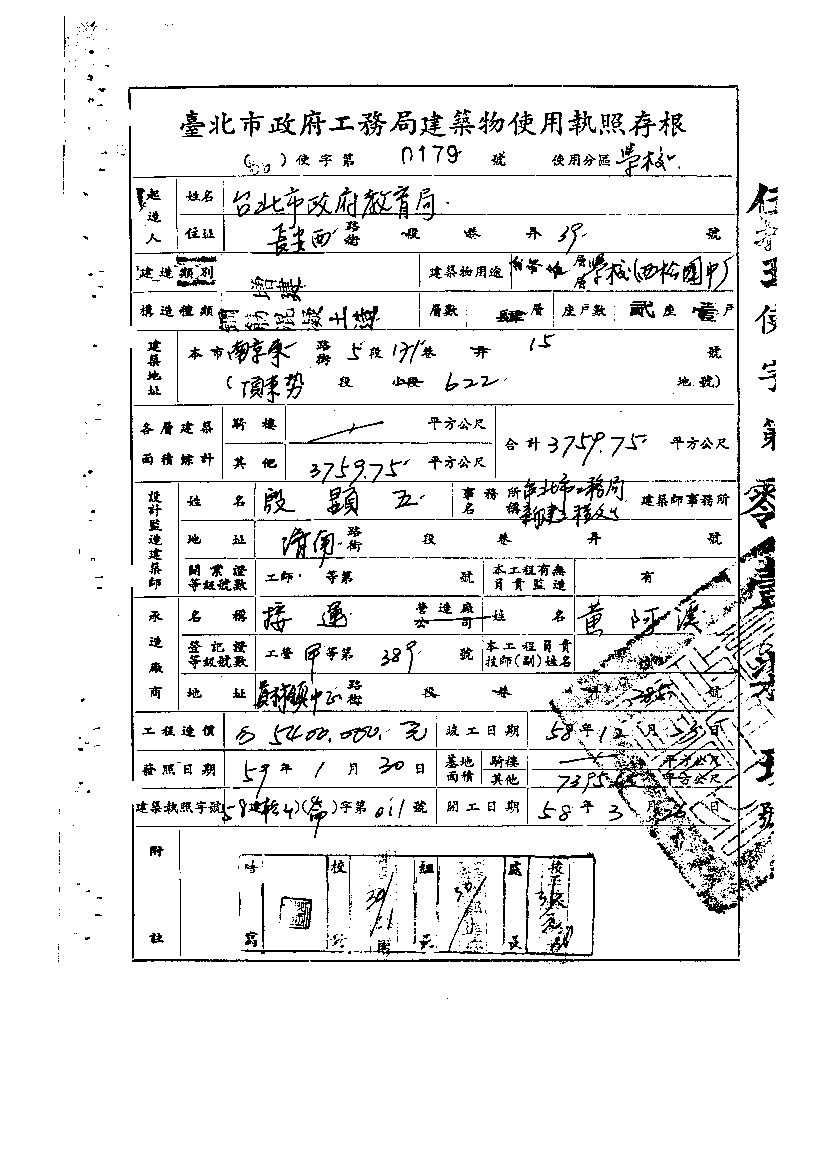 臺北市政府工務局建築物使用執照存根
使字第 0179 號 使用分區 學校
起造人 姓名 台北市政府教育局
住址 長安西 路街 段 巷 弄 39 號
建造類別 增建 建築物用途 層 層 學校(西松國中)
構造種類 鋼筋混凝土造 層數 肆層 座戶數 貳座 壹戶
建築地址 本市南京東 路街 5段 巷 弄 15 號
(頂東勢 段 小段 622 地號)
各層建築面積總計 騎樓 平方公尺 合計 3759.75 平方公尺
其他 3759.75 平方公尺
設計監造建築師 姓名 殷顯五 事務所名稱 台北市工務局 建築師事務所
地址 濟南 路街 段 巷 弄 號
開業證等級號數 工師 等第 號 本工程有無負責監造 有
承造廠商 名稱 營造廠公司 姓名 黃阿溪
登記證等級號數 工營 甲等第 389 號 本工程負責技師(副)姓名
地址 員林鎮中正 路街 段 巷 號
工程造價 5400,000.元 竣工日期 58年12月 日
發照日期 59年1月30日 基地面積 騎樓 平方公尺
其他 平方公尺
建築執照字號 58建 字第 011 號 開工日期 58年3月 日
附註
校 組 處
使字第零壹柒 號